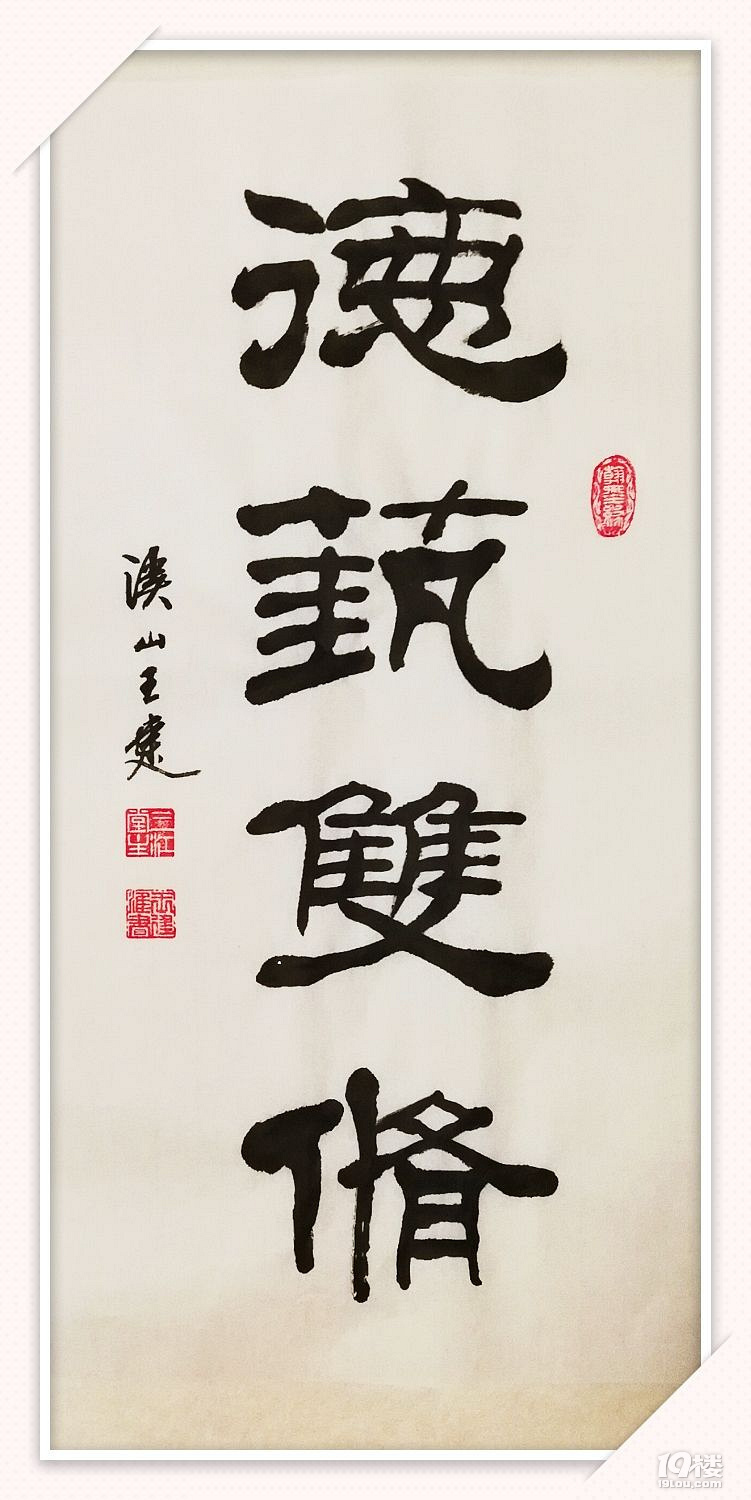 德蓺雙脩
溪山王建
19楼
19lou.com